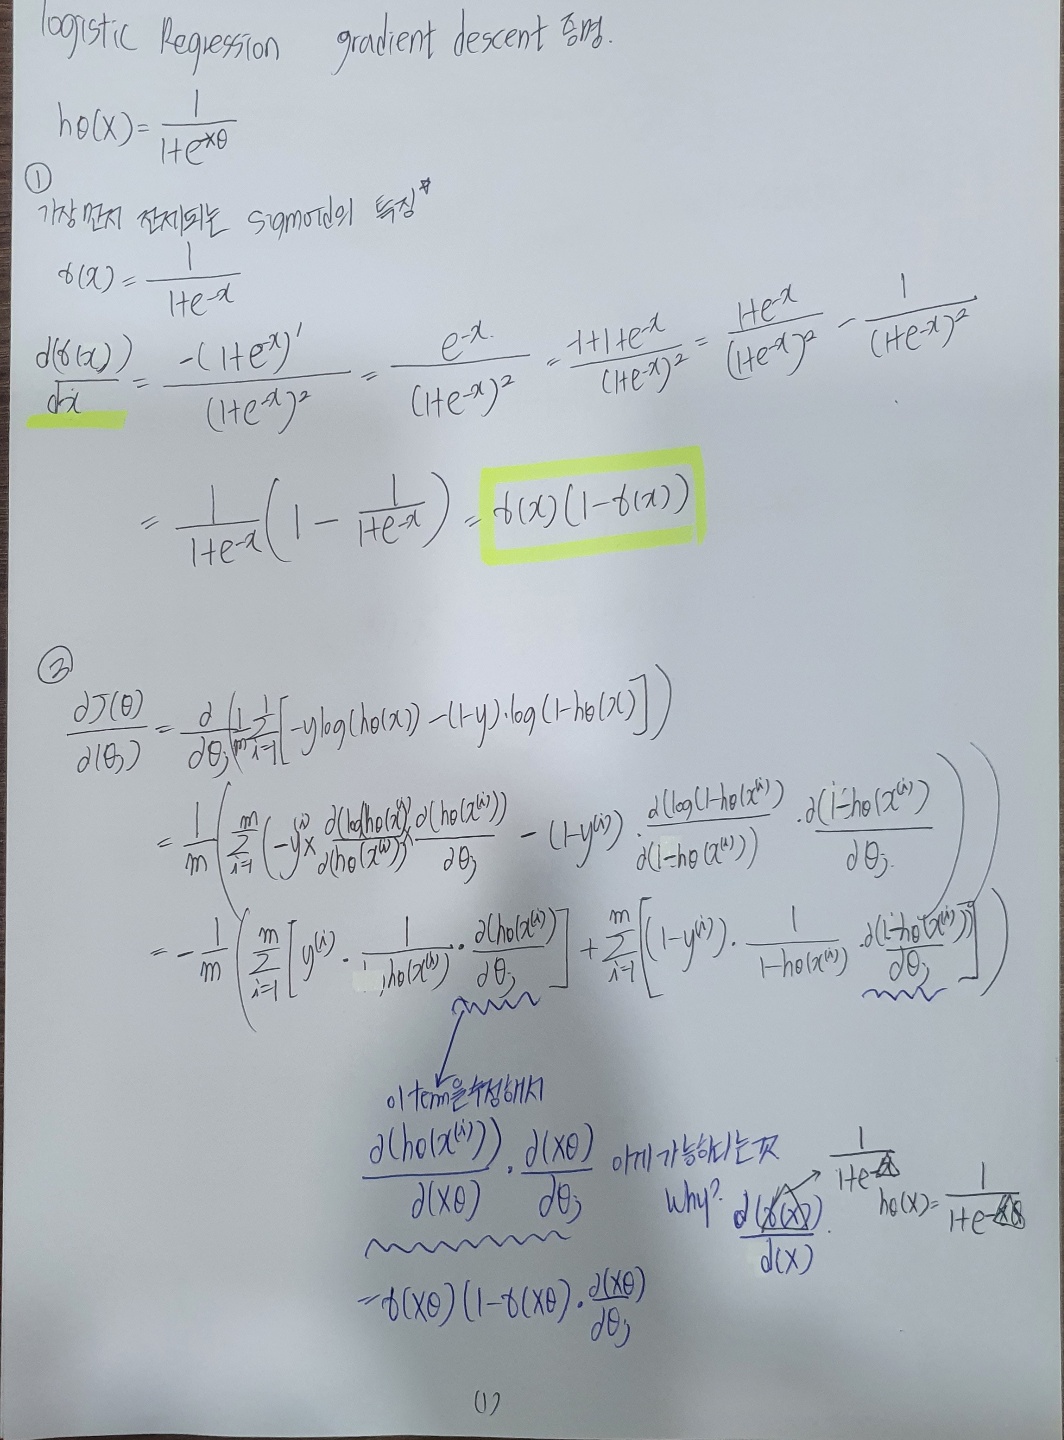 logistic Regression gradient descent 증명.
hθ(x)= 1/(1+e^xθ)
①
가장먼저 전제되는 sigmoid의 특징*
σ(x)= 1/(1+e^-x)
d(σ(x))/dx = -(1+e^-x)'/(1+e^-x)² = e^-x./(1+e^-x)² = (-1+1+e^-x)/(1+e^-x)² = (1+e^-x)/(1+e^-x)² - 1/(1+e^-x)²
= 1/(1+e^-x) (1 - 1/(1+e^-x)) = σ(x)(1-σ(x))
②
∂J(θ)/∂(θj) = ∂/∂θj (1/m Σ i=1 [-ylog(hθ(x)) -(1-y)·log(1-hθ(x)])
= 1/m (Σ i=1 m (-y^(i) × ∂(log(hθ(x^(i))/∂(hθ(x^(i))) × ∂(hθ(x^(i)))/∂θj - (1-y^(i)) · ∂(log(1-hθ(x^(i)))/∂(1-hθ(x^(i))) · ∂(1-hθ(x^(i)))/∂θj. ))
= - 1/m (Σ i=1 m [y^(i) · 1/hθ(x^(i)) · ∂(hθ(x^(i)))/∂θj] + Σ i=1 m [(1-y^(i)) · 1/(1-hθ(x^(i))) · ∂(1-hθ(x^(i)))/∂θj])
이 term을 수정해서
∂(hθ(x^(i)))/∂(xθ) · ∂(xθ)/∂θj 이게 가능하다는 것
Why? ∂(σ(x))/∂(x) 1/(1+e^-x) hθ(x)= 1/(1+e^-xθ)
=σ(xθ)(1-σ(xθ)·∂(xθ)/∂θj
(1)